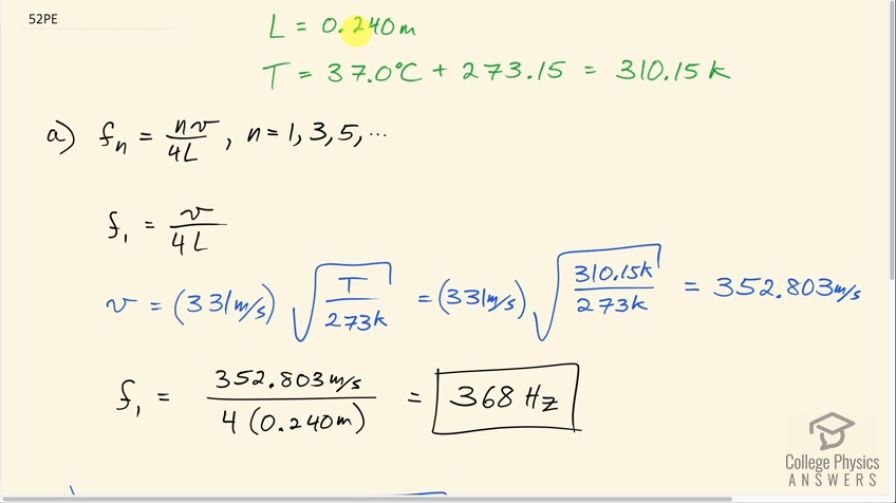 52PE
L = 0.240m
T = 37.0°C + 273.15 = 310.15 k
a) fₙ = nv/4L, n = 1, 3, 5, ...
f₁ = v/4L
v = (331m/s) √(T/273k) = (331m/s) √(310.15k/273k) = 352.803m/s
f₁ = 352.803m/s / 4(0.240m) = 368 Hz
College Physics
ANSWERS